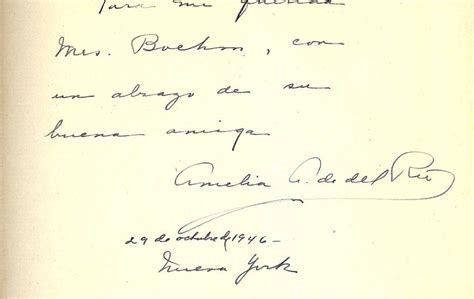 Para mi querida
Mrs. Boehm, con
un abrazo de su
buena amiga
Amelia A. de del Río
29 de octubre de 1946 -
Nueva York